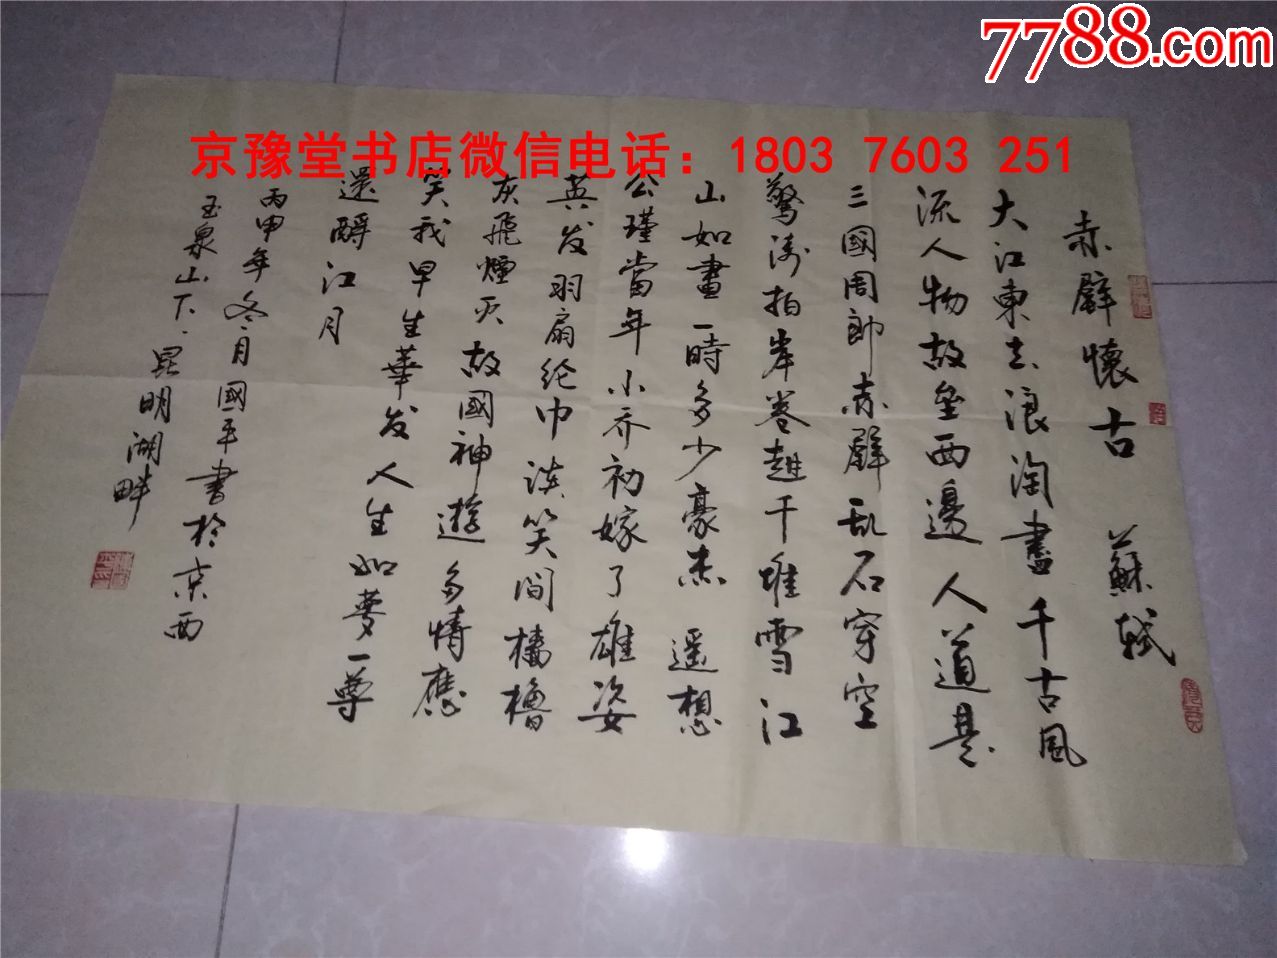 7788.com
京豫堂书店微信电话：1803 7603 251
赤壁懷古 蘇軾
大江東去浪淘盡千古風
流人物故壘西邊人道是
三國周郎赤壁乱石穿空
驚涛拍岸卷起千堆雪江
山如畫一時多少豪杰遥想
公瑾當年小乔初嫁了雄姿
英发羽扇纶巾谈笑间樯櫓
灰飛煙灭故國神遊多情應
笑我早生華发人生如夢一尊
還酹江月
丙申年冬月國平書於京西
玉泉山下、昆明湖畔